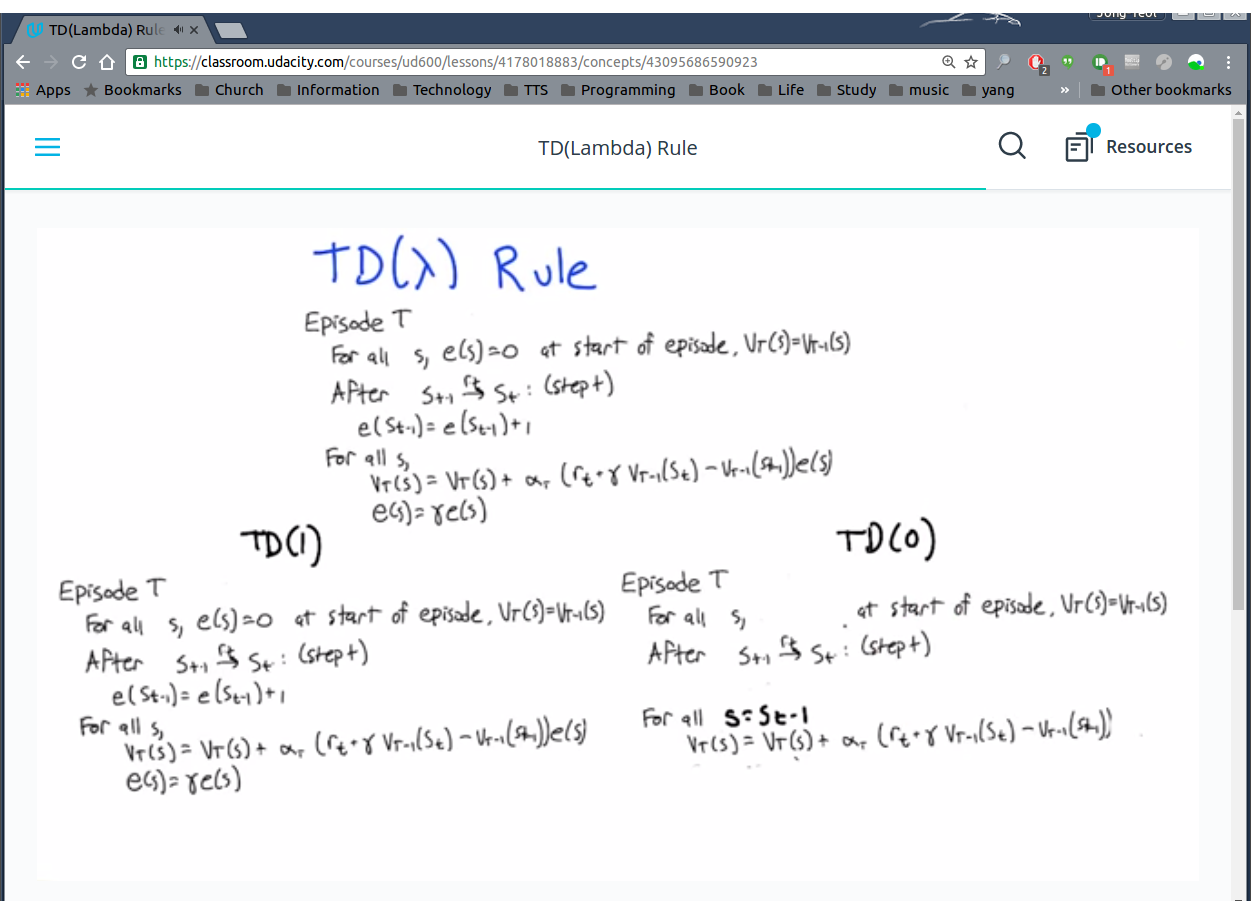 Jong Yeol
TD(Lambda) Rule
https://classroom.udacity.com/courses/ud600/lessons/4178018883/concepts/43095686590923
2
1
Apps Bookmarks Church Information Technology TTS Programming Book Life Study music yang » Other bookmarks
TD(Lambda) Rule
Resources
TD(λ) Rule
Episode T
For all s, e(s)=0 at start of episode, V_T(s)=V_{T-1}(s)
After S_{t-1} →^{r_t} S_t : (step t)
e(S_{t-1})=e(S_{t-1})+1
For all s,
V_T(s)=V_T(s)+α_T(r_t+γV_{T-1}(S_t)-V_{T-1}(S_{t-1}))e(s)
e(s)=γe(s)
TD(1)
Episode T
For all s, e(s)=0 at start of episode, V_T(s)=V_{T-1}(s)
After S_{t-1} →^{r_t} S_t : (step t)
e(S_{t-1})=e(S_{t-1})+1
For all s,
V_T(s)=V_T(s)+α_T(r_t+γV_{T-1}(S_t)-V_{T-1}(S_{t-1}))e(s)
e(s)=γe(s)
TD(0)
Episode T
For all s, at start of episode, V_T(s)=V_{T-1}(s)
After S_{t-1} →^{r_t} S_t : (step t)
For all s=S_{t-1}
V_T(s)=V_T(s)+α_T(r_t+γV_{T-1}(S_t)-V_{T-1}(S_{t-1}))